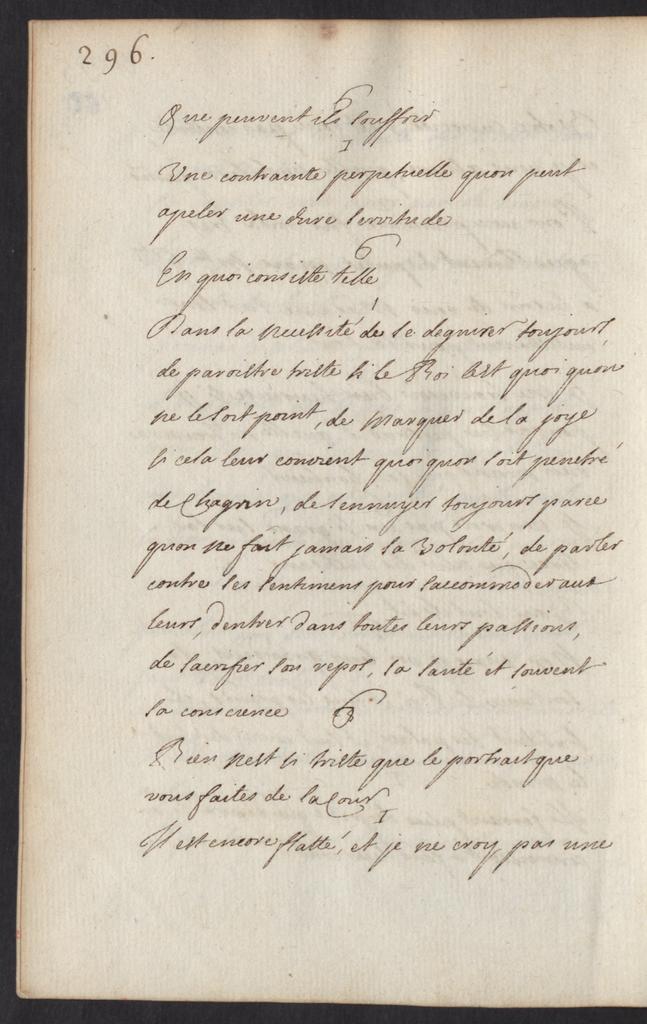 296.
6
Que peuvent ils souffrir
I
Une contrainte perpetuelle quon peut
apeler une dure servitude
6
En quoi consiste telle
I
Dans la necessité de se deguiser toujours,
de paroistre triste si le Roi lest quoi quon
ne le soit point, de marquer de la joye
si cela leur convient quoi quon soit penetré
de Chagrin, de sennuyer toujours parce
quon ne fait jamais sa volonté, de parler
contre ses sentimens pour saccommoder aux
leurs, dentrer dans toutes leurs passions,
de sacrifier son repos, sa santé et souvent
sa conscience 6
Rien nest si triste que le portrait que
vous faites de la Cour
I
Il est encore flatté, et je ne croy pas une